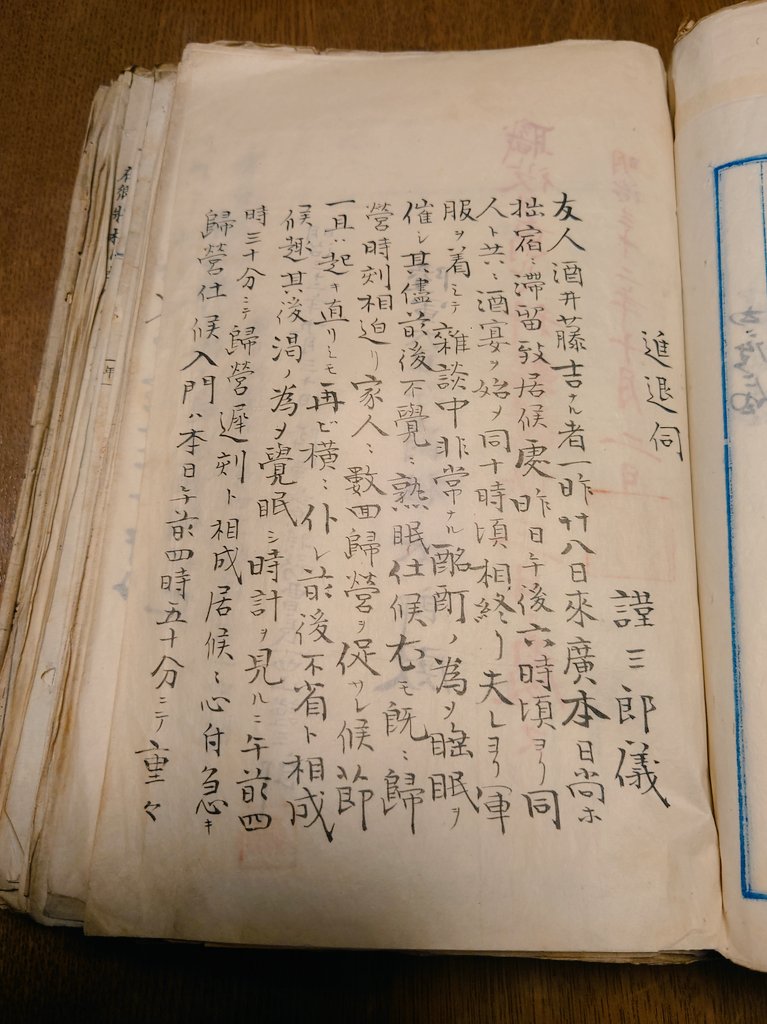 進退伺
謹三郎儀
友人酒井藤吉ナル者一昨廿八日來廣本日尚ホ
拙宿ニ滞留致居候處昨日午後六時頃ヨリ同
人ト共ニ酒宴ヲ始メ同十時頃相終リ夫レヨリ軍
服ヲ着シテ雜談中非常ナル酩酊ノ為メ睡眠ヲ
催シ其儘前後不覺ニ熟眠仕候尤モ既ニ歸
營時刻相迫リ家人ニ數回歸營ヲ促サレ候節
一旦ハ起キ直リシモ再ビ橫ニ仆レ前後不省ト相成
候趣其後渇ノ為メ覺眠シ時計ヲ見ルニ午前四
時三十分ニテ歸營遲刻ト相成居候ニ心付急キ
歸營仕候入門ハ本日午前四時五十分ニテ重々